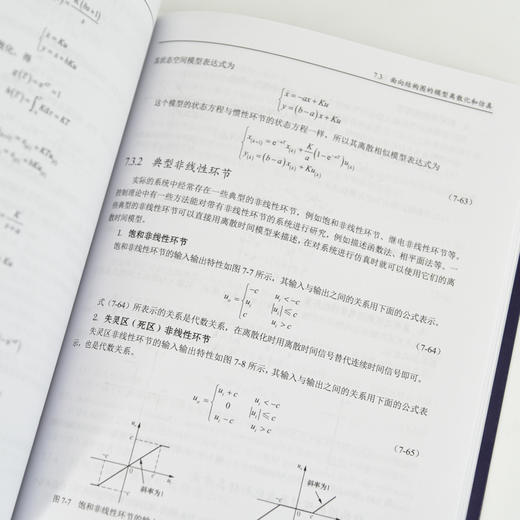 7.3 面向结构图的模型离散化和仿真
其状态空间模型表达式为
ẋ=-ax+Ku
y=(b-a)x+Ku
这个模型的状态方程与惯性环节的状态方程一样，所以其离散相似模型表达式为
x(k+1)=e^{-aT}x(k)+K/a(1-e^{-aT})u(k)
y(k)=(b-a)x(k)+Ku(k)
(7-63)
7.3.2 典型非线性环节
实际的系统中经常存在一些典型的非线性环节，例如饱和非线性环节、继电非线性环节等。
控制理论中有一些方法能对带有非线性环节的系统进行研究，例如描述函数法、相平面法等。一
些典型的非线性环节可以直接用离散时间模型来描述，在对系统进行仿真时就可以使用它们的离
散时间模型。
1. 饱和非线性环节
饱和非线性环节的输入输出特性如图 7-7 所示，其输入与输出之间的关系用下面的公式表示。
-c u_i<-c
u_o= u_i |u_i|≤c
c u_i>c
(7-64)
式（7-64）所表示的关系是代数关系，在离散化时用离散时间信号替代连续时间信号即可。
2. 失灵区（死区）非线性环节
失灵区非线性环节的输入输出特性如图 7-8 所示，其输入与输出之间的关系用下面的公式表
示，也是代数关系。
u_i+c u_i<-c
u_o= 0 |u_i|≤c
u_i-c u_i>c
(7-65)
u_o
c
-c
c
u_i
斜率为1
u_o
-c
0
c
斜率为1
图 7-7 饱和非线性环节的输